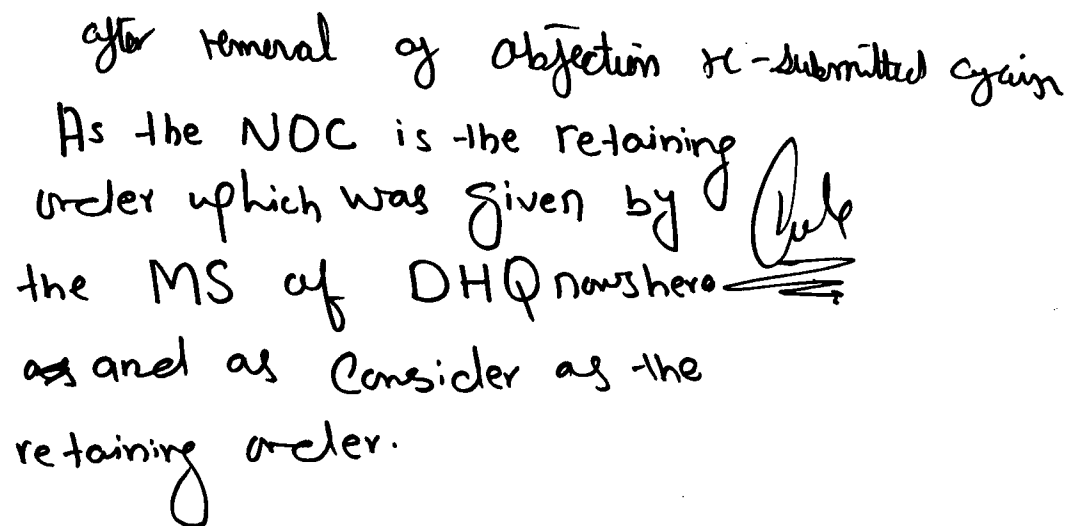 after removal of objection re-submitted again
As the NOC is the retaining
order which was given by
the MS of DHQ nowshera
and as Consider as the
retaining order.